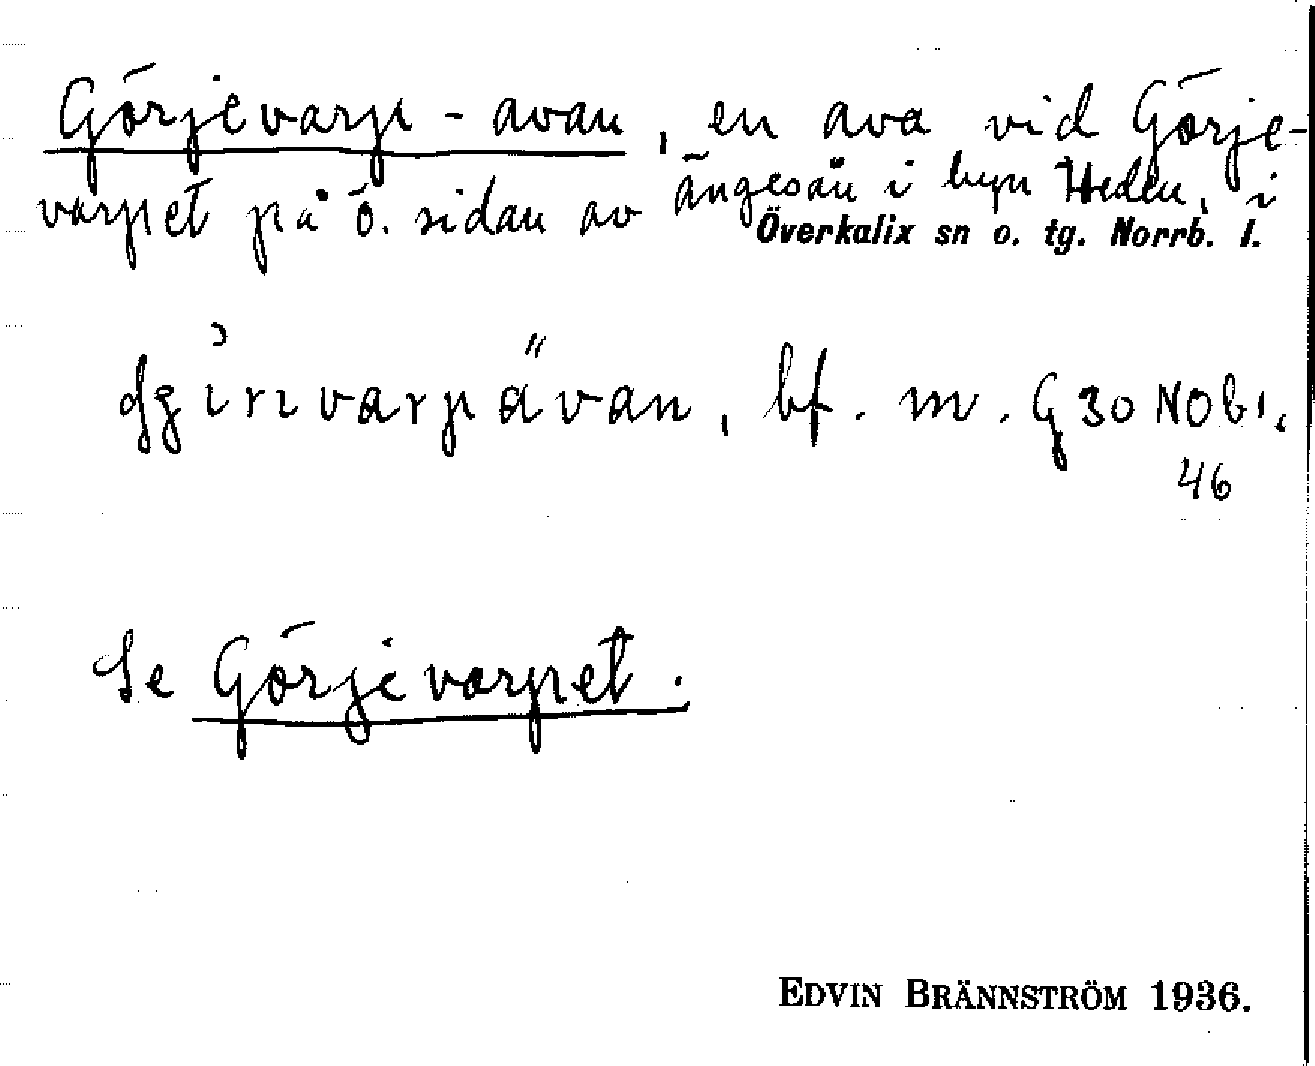 Görjevarp-avan, en ava vid Görje-
varpet på ö. sidan av ängesån i byn Heden, i
Överkalix sn o. tg. Norrb. l.
bf. m. G 30 NOb1.
46
Se Görjevarpet.
EDVIN BRÄNNSTRÖM 1936.